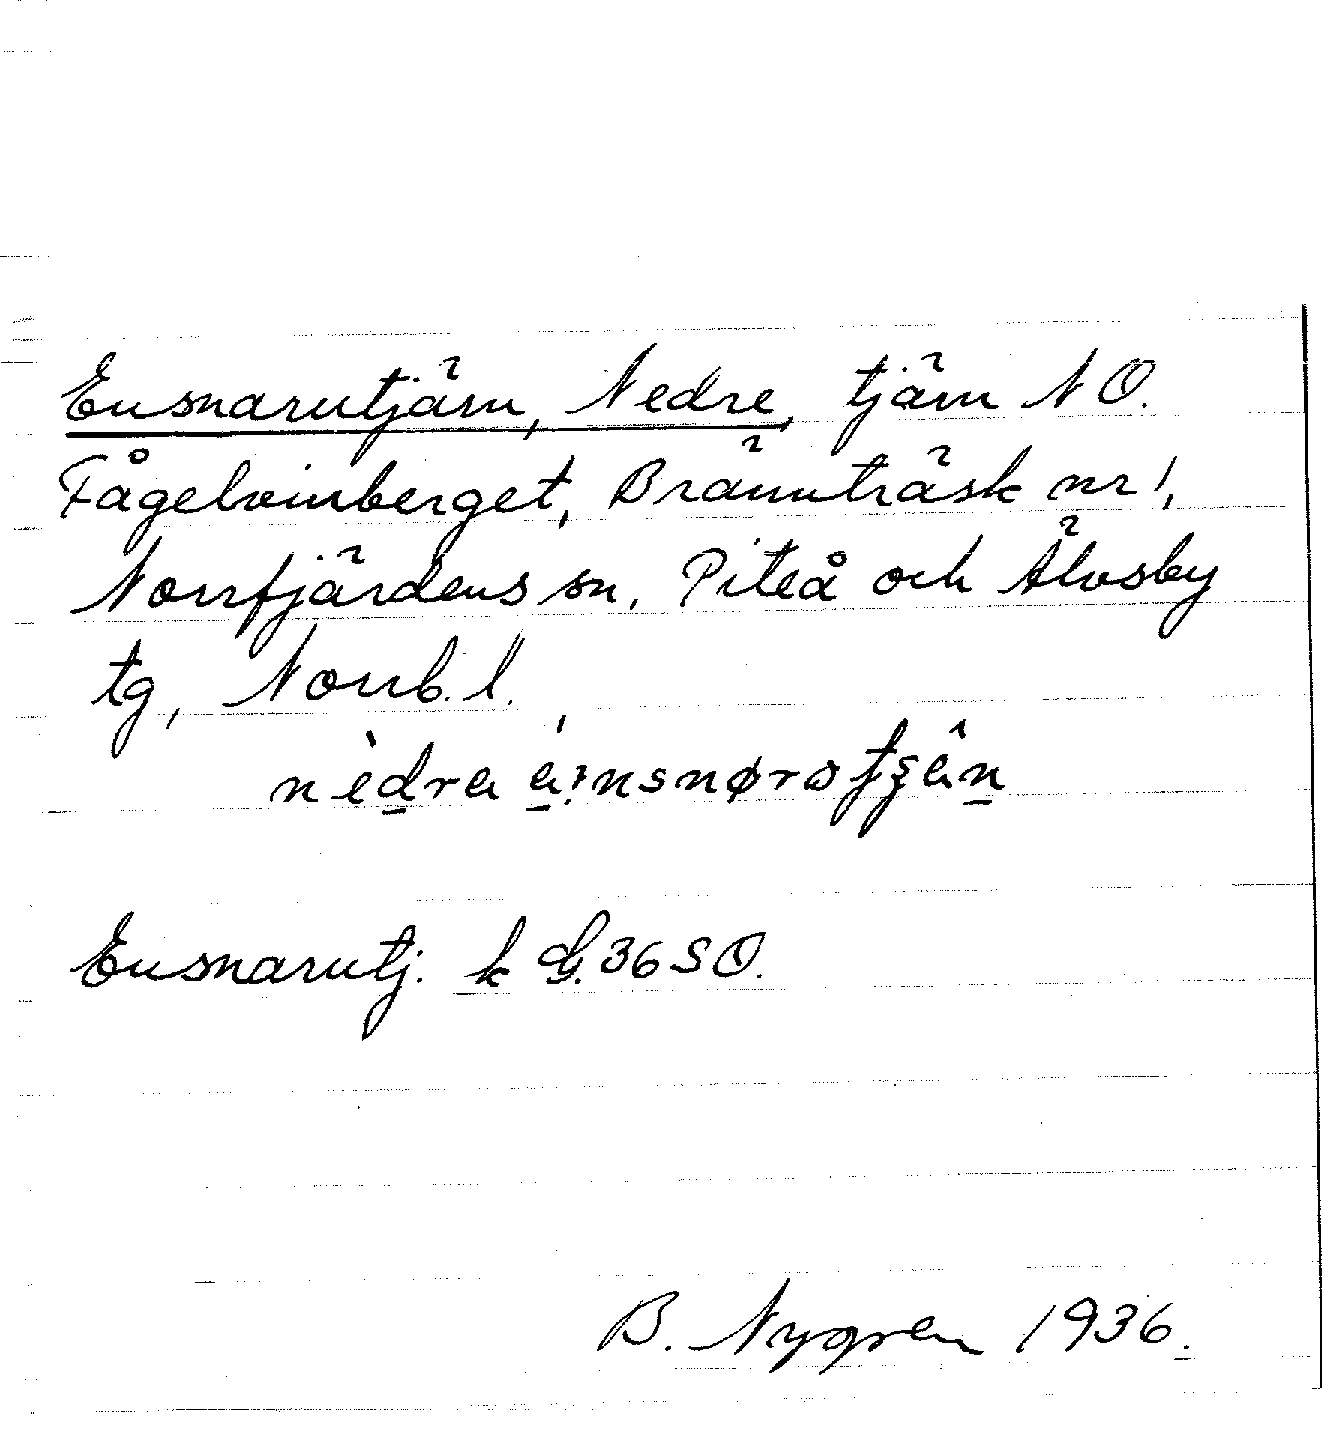 Ensnarutjärn, Nedre, tjärn NO.
Fågelvinberget, Brännträsk nr 1,
Norrfjärdens sn, Piteå och Älvsby
tg, Norrb. l.
nèdra
Ensnarutj. k G. 36 SO.
B. Nygren 1936.